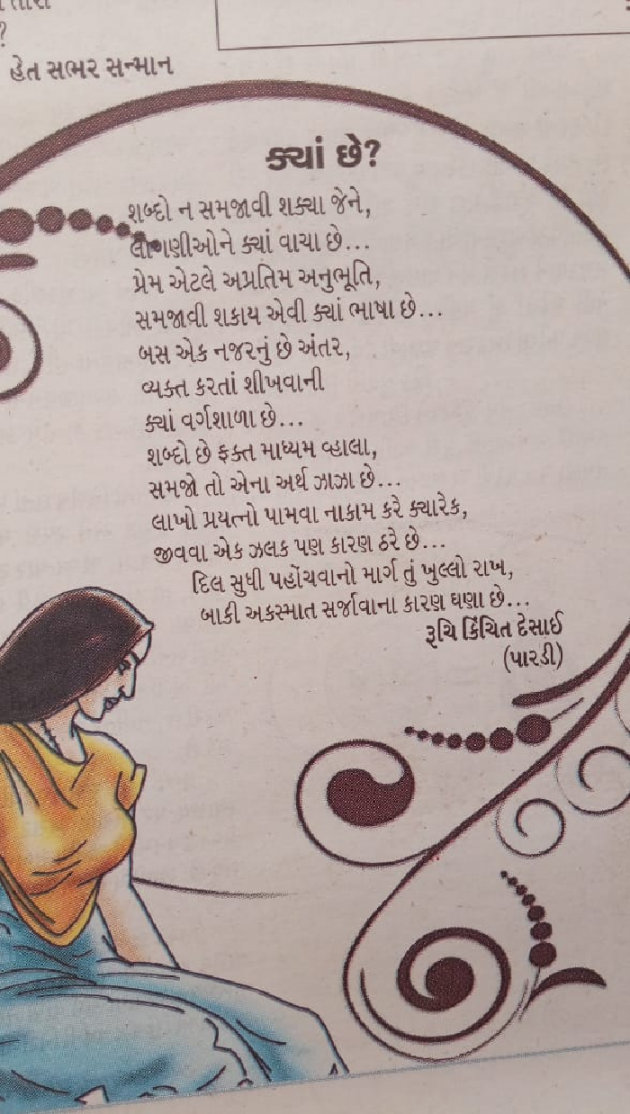 ?
હેત સભર સન્માન
ક્યાં છે?
શબ્દો ન સમજાવી શક્યા જેને,
લાગણીઓને ક્યાં વાચા છે...
પ્રેમ એટલે અપ્રતિમ અનુભૂતિ,
સમજાવી શકાય એવી ક્યાં ભાષા છે...
બસ એક નજરનું છે અંતર,
વ્યક્ત કરતાં શીખવાની
ક્યાં વર્ગશાળા છે...
શબ્દો છે ફક્ત માધ્યમ વ્હાલા,
સમજો તો એના અર્થ ઝાઝા છે...
લાખો પ્રયત્નો પામવા નાકામ કરે ક્યારેક,
જીવવા એક ઝલક પણ કારણ ઠરે છે...
દિલ સુધી પહોંચવાનો માર્ગ તું ખુલ્લો રાખ,
બાકી અકસ્માત સર્જાવાના કારણ ઘણા છે...
રૂચિ કિંચિત દેસાઈ
(પારડી)